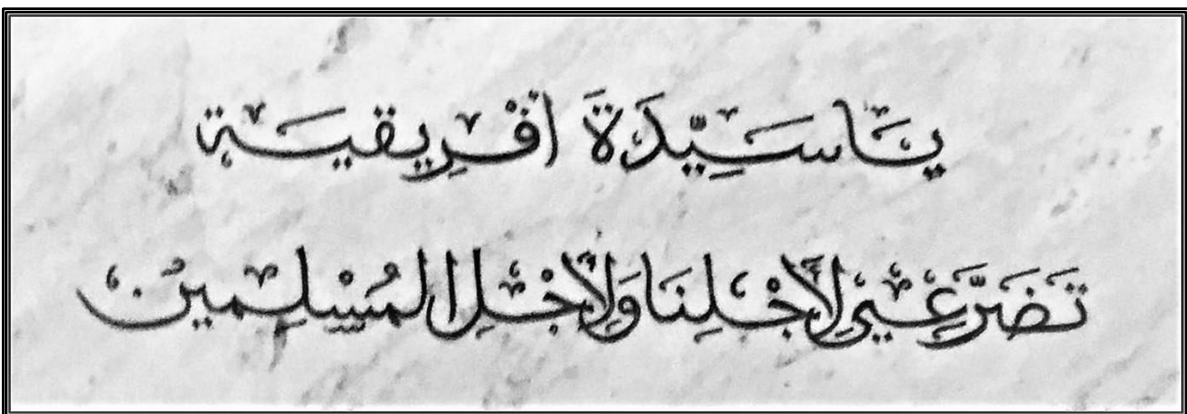 يَا سَيِّدَةَ افْرِيقيَة
تَضَرَّعِي لِأَجْلِنَا وَلِأَجْلِ المُسْلِمين